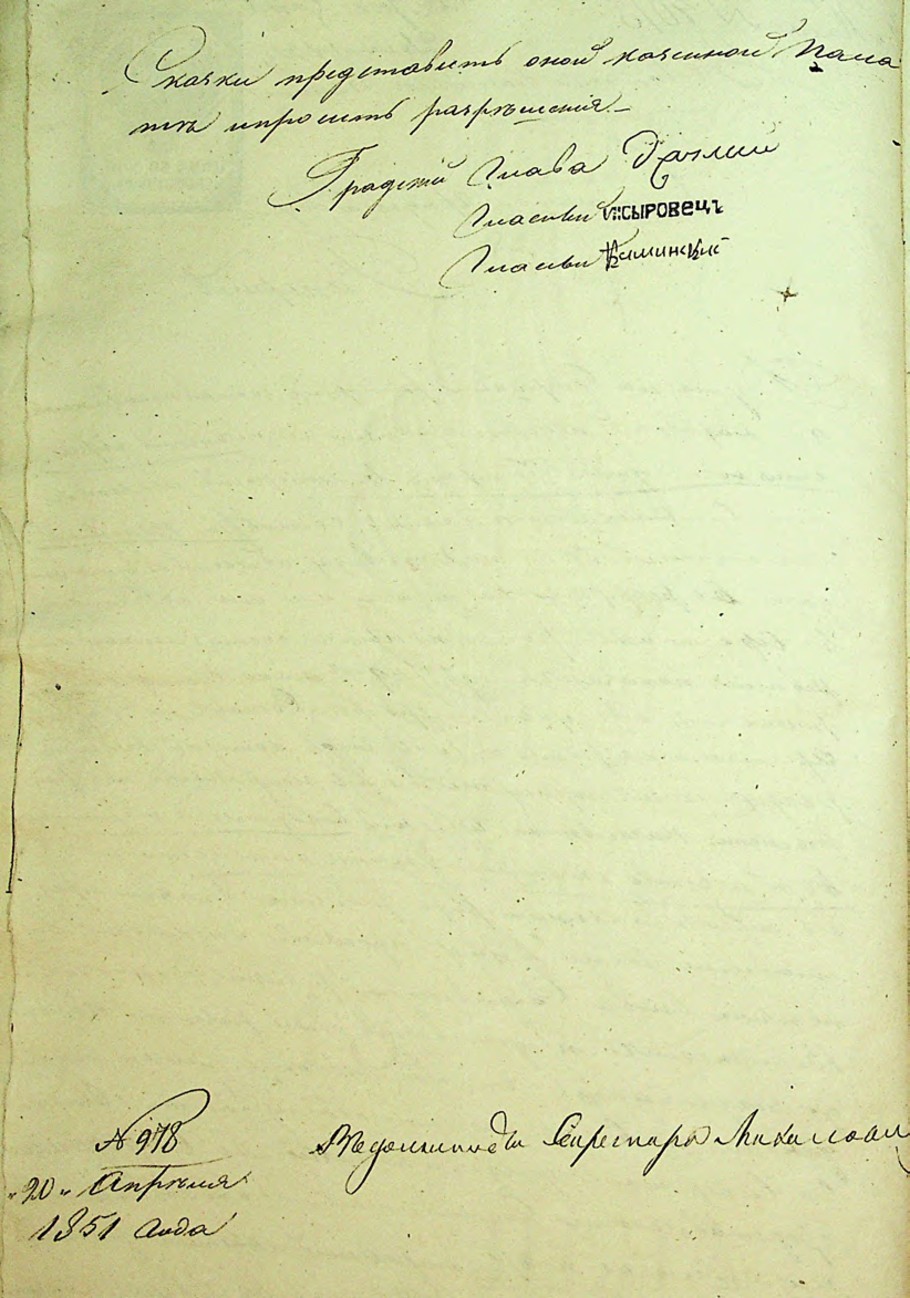 Скачки представить оной казенной Пала
тѣ и просить разрѣшения —
Градской Глава
Гласный
Гласный Каминскій
№ 978
"20" Апрѣля
1851 года
Секретарь